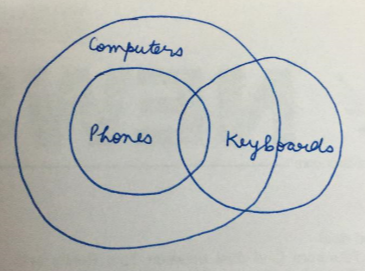 Computers
Phones
Keyboards